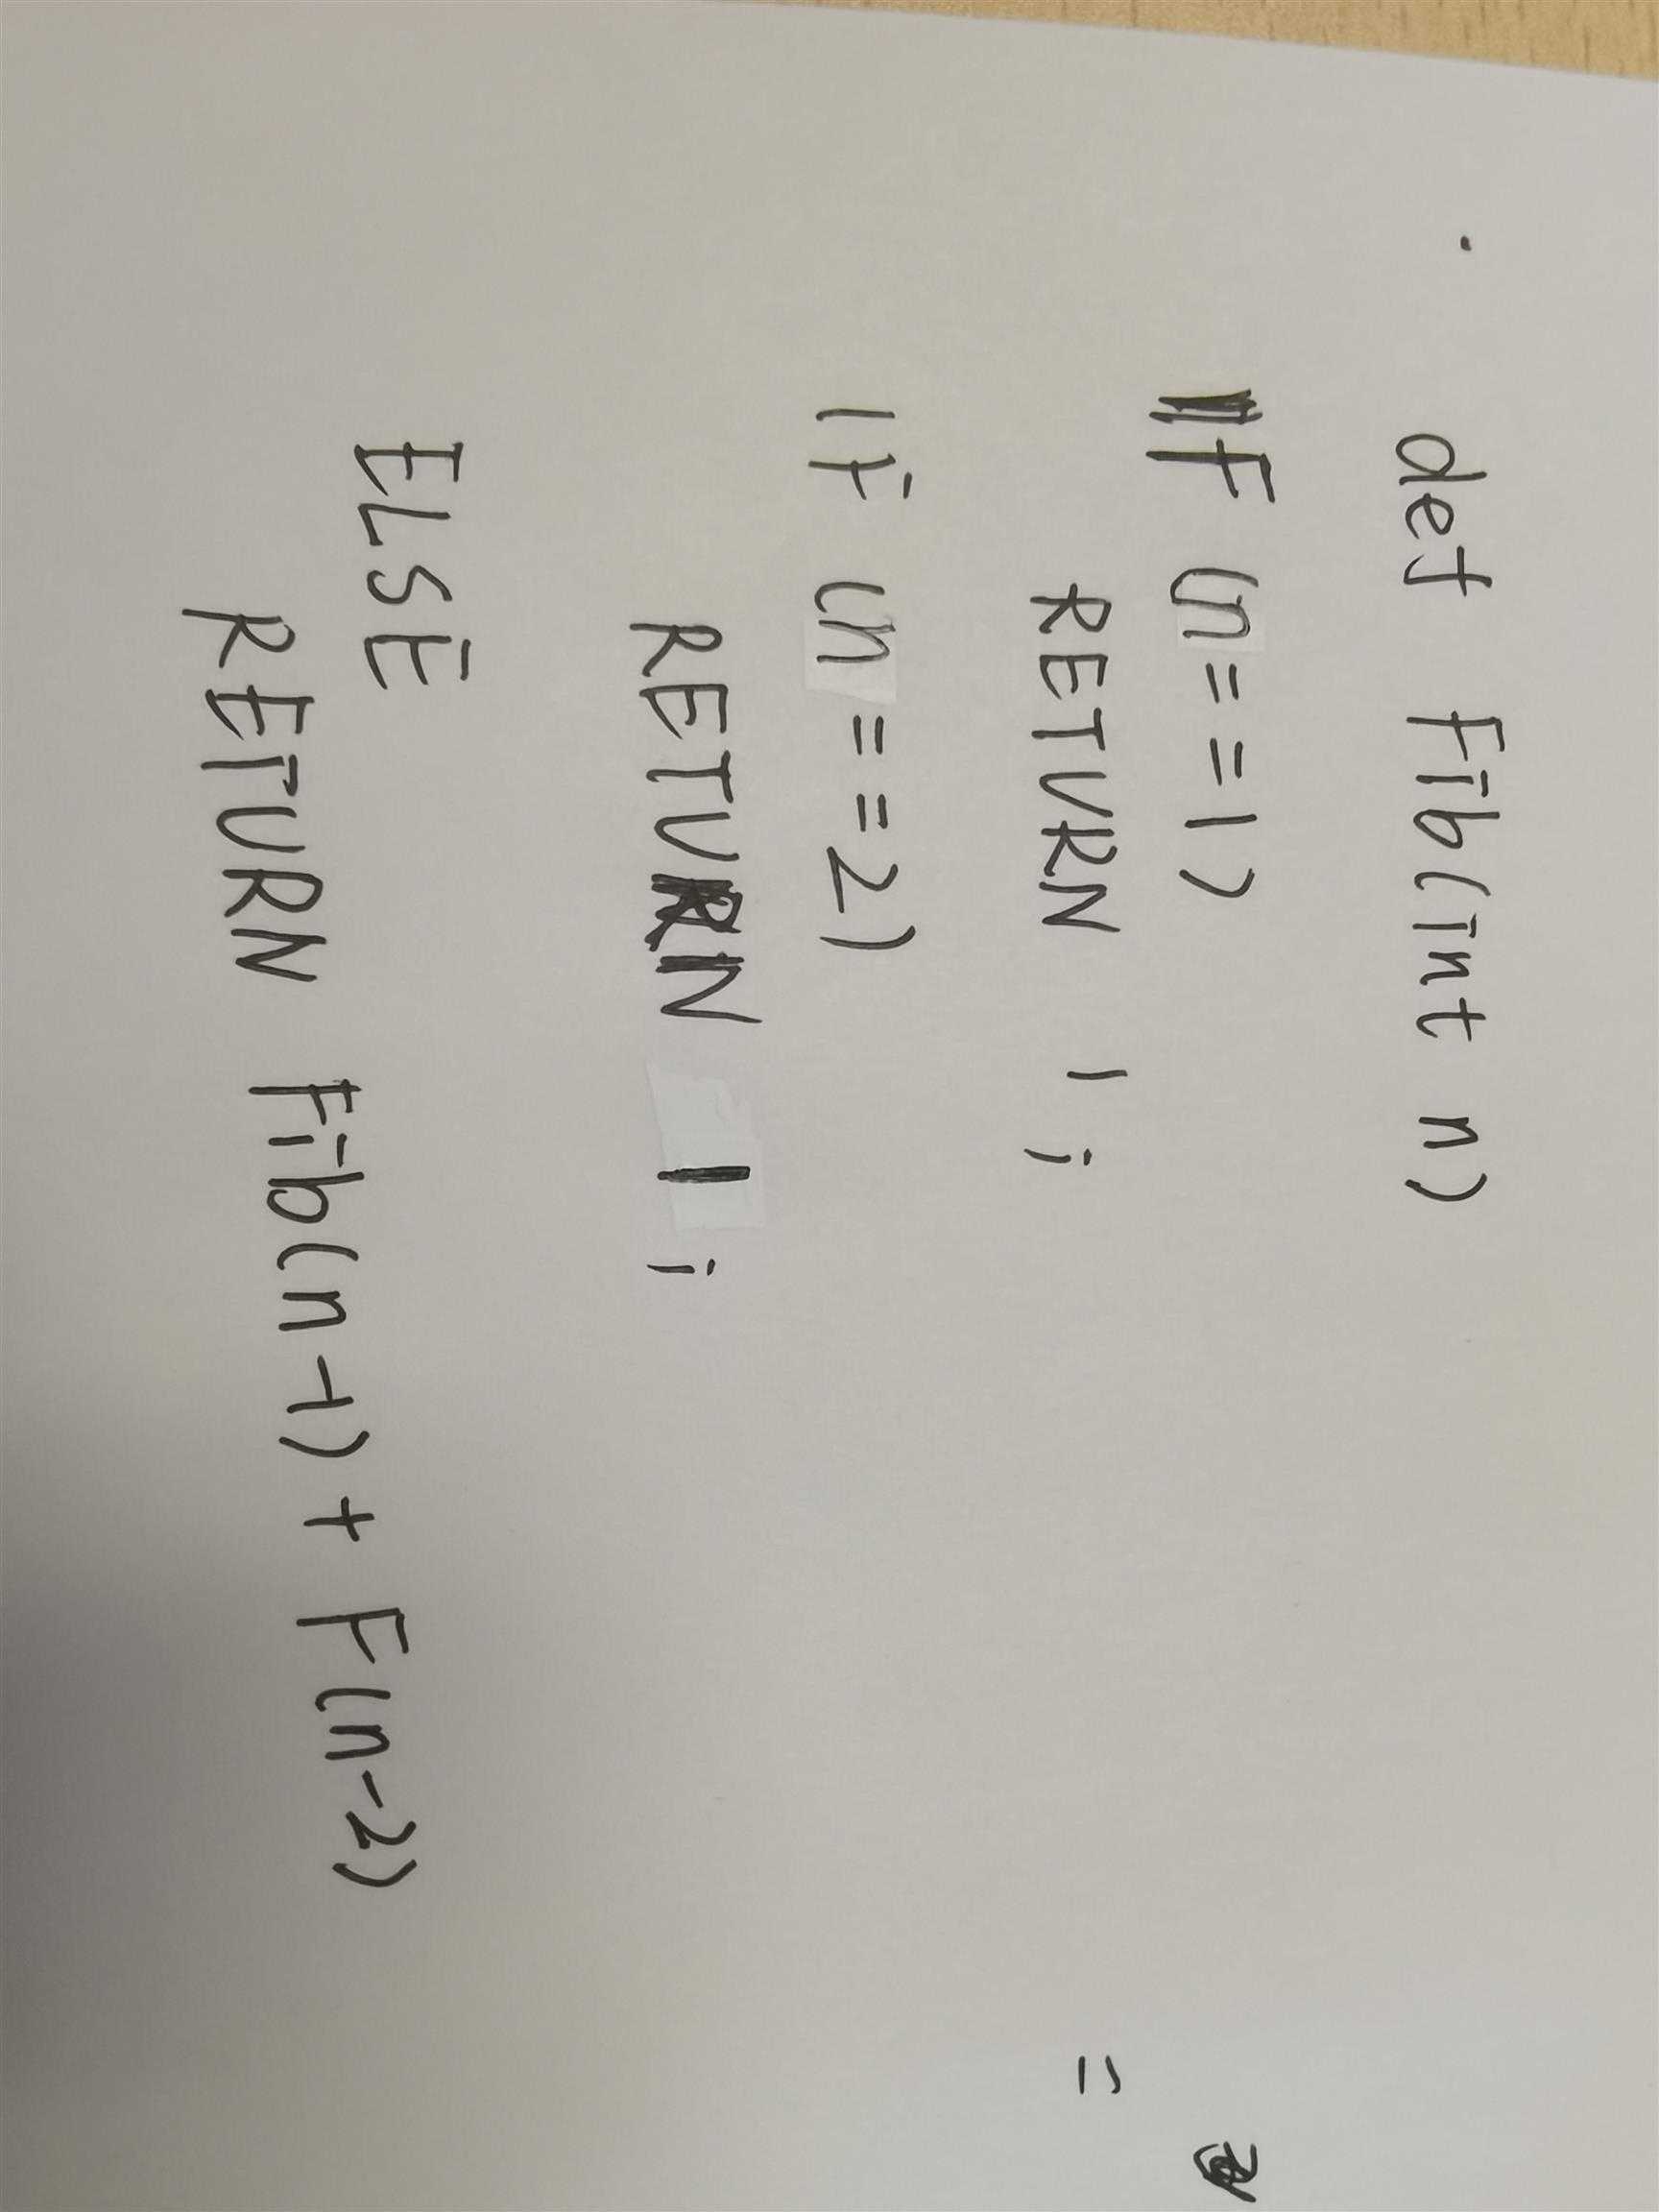 def Fib(int n)
IF (n==1)
RETURN 1;
IF (n==2)
RETURN 1;
ELSE
RETURN Fib(n-1) + F(n-2)